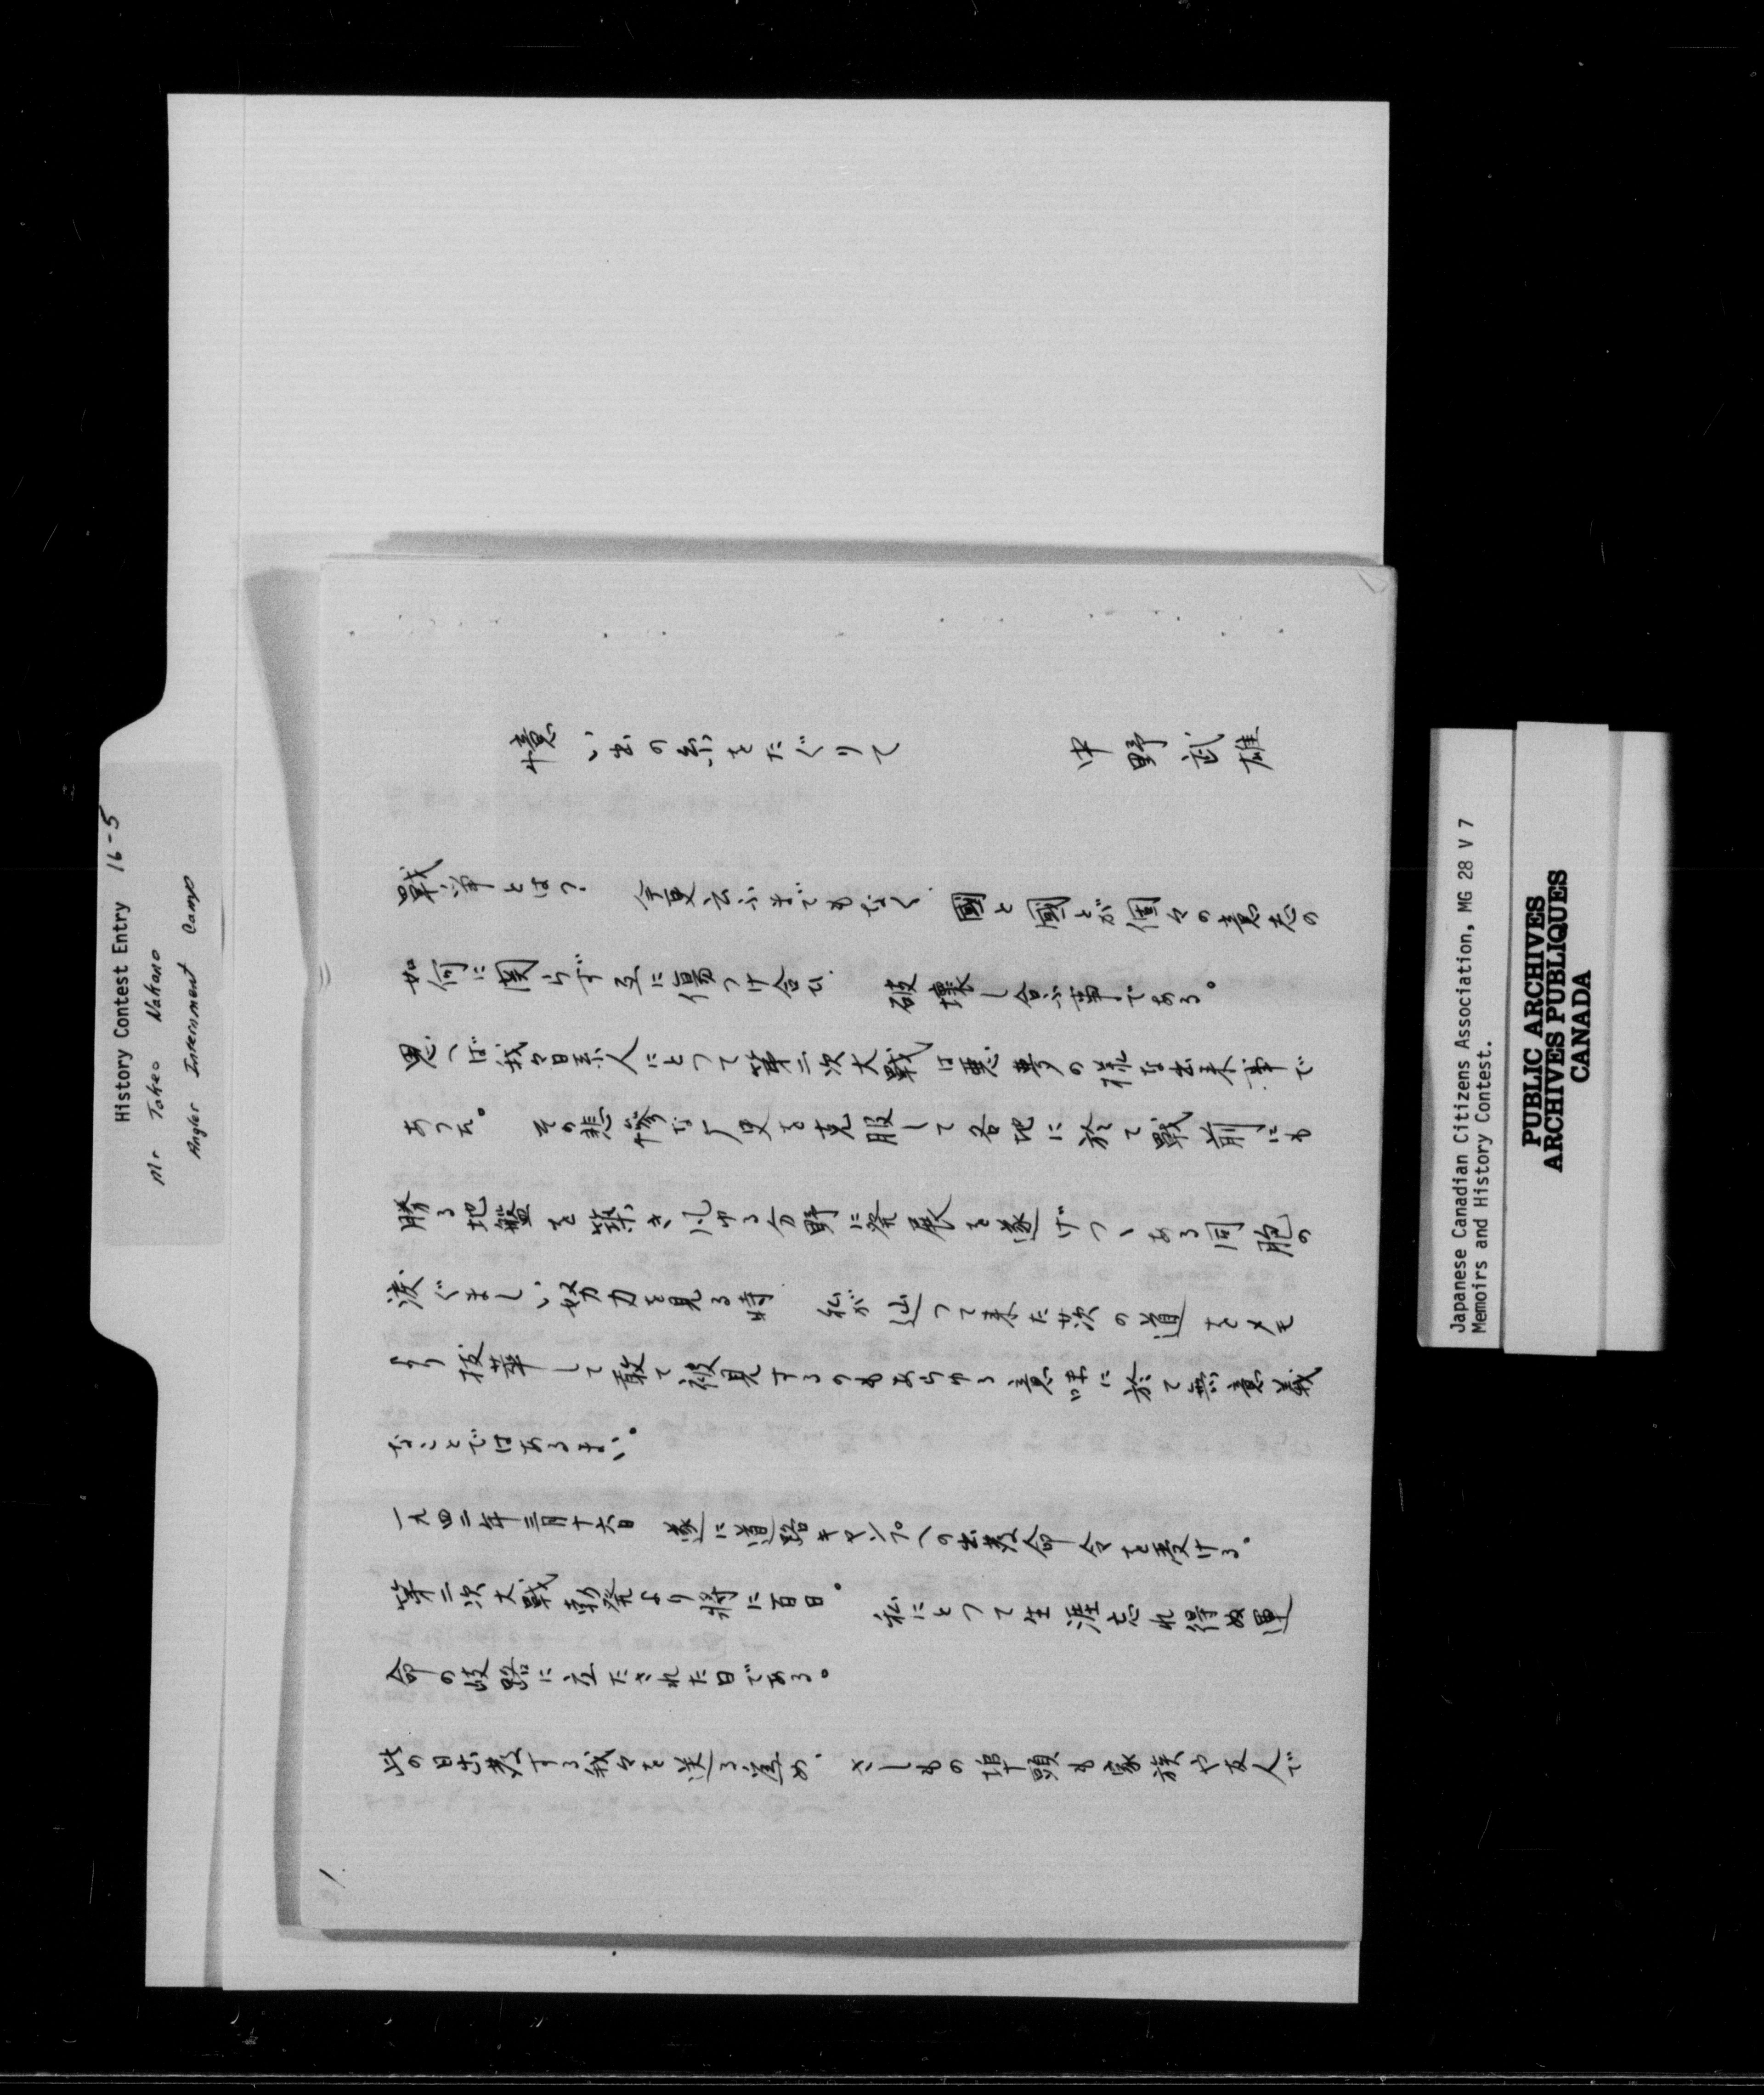 History Contest Entry 16-5
Mr Takeo Nakano
Angler Internment Camp
憶い出の糸をたぐりて
中野武雄
戦争とは、今更云ふまでもなく、國と國とが個々の意志の
如何に関らず互に傷つけ合ひ、破壊し合ふ事である。
思へば我々日系人にとつて第二次大戦は悪夢の様な出来事で
あつた。その悲惨な歴史を克服して各地に於て戦前にも
勝る地盤を築き凡ゆる分野に発展を遂げつゝある同胞の
涙ぐましい努力を見る時、私が辿つて来た茨の道をメモ
より抜萃して敢て披見するのもあらゆる意味に於て無意義
なことではあるまい。
一九四二年三月十六日 遂に道路キャンプへの出発命令を受ける。
第二次大戦勃発より将に百日。私にとつて生涯忘れ得ぬ運
命の岐路に立たされた日である。
此の日出発する我々を送る為め、さしもの埠頭も家族や友人で
1.
Japanese Canadian Citizens Association, MG 28 V 7
Memoirs and History Contest.
PUBLIC ARCHIVES
ARCHIVES PUBLIQUES
CANADA